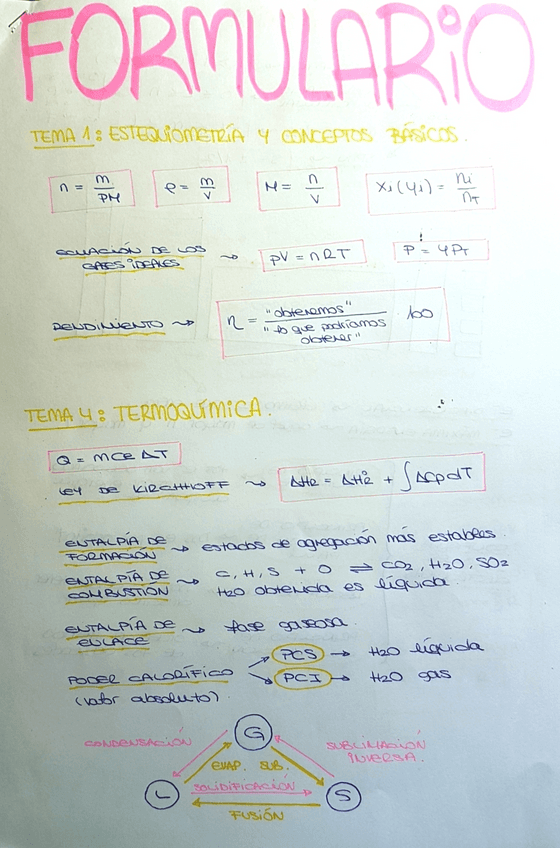 FORMULARIO
TEMA 1: ESTEQUIOMETRÍA Y CONCEPTOS BÁSICOS.
n = m/PM ρ = m/V M = n/V Xi (Yi) = ni/nT
ECUACIÓN DE LOS
GASES IDEALES → PV = nRT P = YPT
RENDIMIENTO → η = "obtenemos" / "lo que podríamos obtener" · 100
TEMA 4: TERMOQUÍMICA.
Q = mce ΔT
LEY DE KIRCHHOFF → ΔHR = ΔHR° + ∫ΔCp dT
ENTALPÍA DE
FORMACIÓN → estados de agregación más estables.
ENTALPÍA DE
COMBUSTION → C, H, S + O ⇌ CO2, H2O, SO2
H2O obtenida es líquida.
ENTALPÍA DE
ENLACE → fase gaseosa.
PODER CALORÍFICO
(valor absoluto).
PCS → H2O líquida
PCI → H2O gas
G
CONDENSACIÓN
SUBLIMACIÓN
INVERSA.
EVAP. SUB.
SOLIDIFICACIÓN
L
S
FUSIÓN